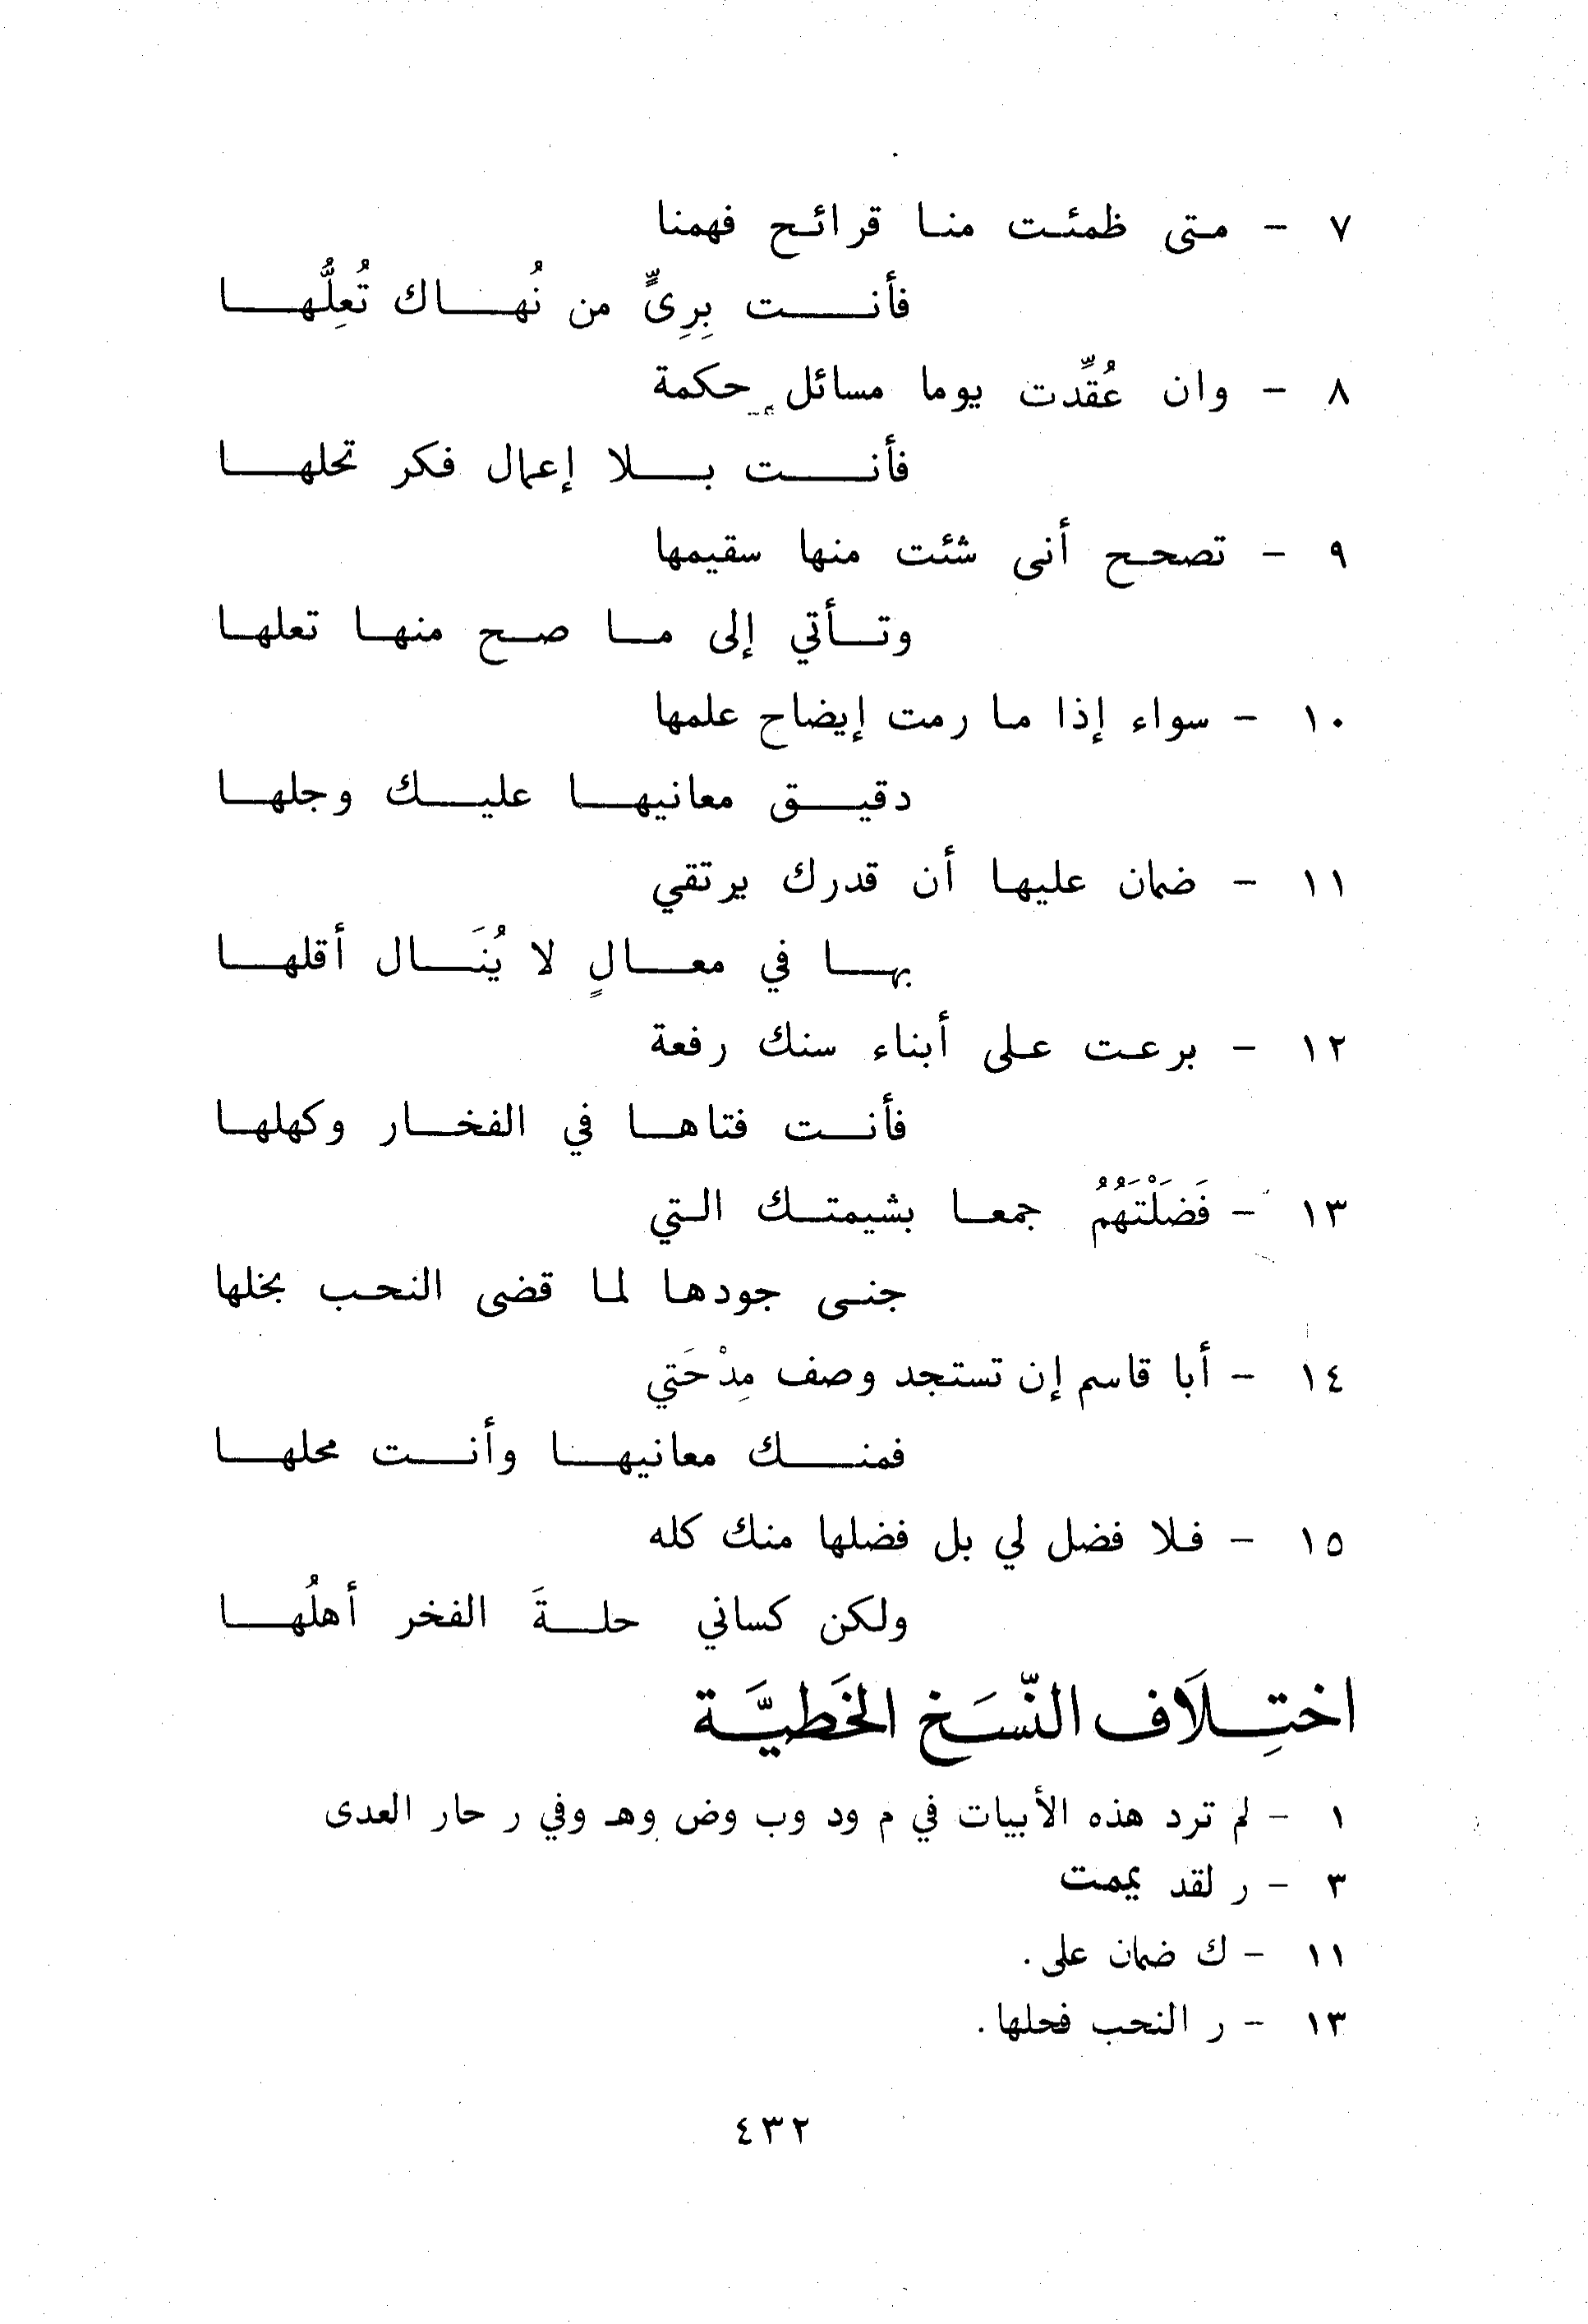 ٧ - متى ظمئت منا قرائح فهمنا
فأنت بِرِىٍّ من نُهاك تُعِلُّها
٨ - وان عُقِّدت يوما مسائل حكمة
فأنت بلا إعمال فكر تحلها
٩ - تصحح أنى شئت منها سقيمها
وتأتي إلى ما صح منها تعلها
١٠ - سواء إذا ما رمت إيضاح علمها
دقيق معانيها عليك وجلها
١١ - ضمان عليها أن قدرك يرتقي
بها في معالٍ لا يُنَال أقلها
١٢ - برعت على أبناء سنك رفعة
فأنت فتاها في الفخار وكهلها
١٣ - فَضَلْتَهُمُ جمعا بشيمتك التي
جنى جودها لما قضى النحب بخلها
١٤ - أبا قاسم إن تستجد وصف مِدْحَتي
فمنك معانيها وأنت محلها
١٥ - فلا فضل لي بل فضلها منك كله
ولكن كساني حلةَ الفخر أهلُها
اختِلَاف النّسَخ الخَطيَّة
١ - لم ترد هذه الأبيات في م ود وب وض وهـ وفي ر حار العدى
٣ - ر لقد يممت
١١ - ك ضمان على.
١٣ - ر النحب فحلها.
٤٣٢